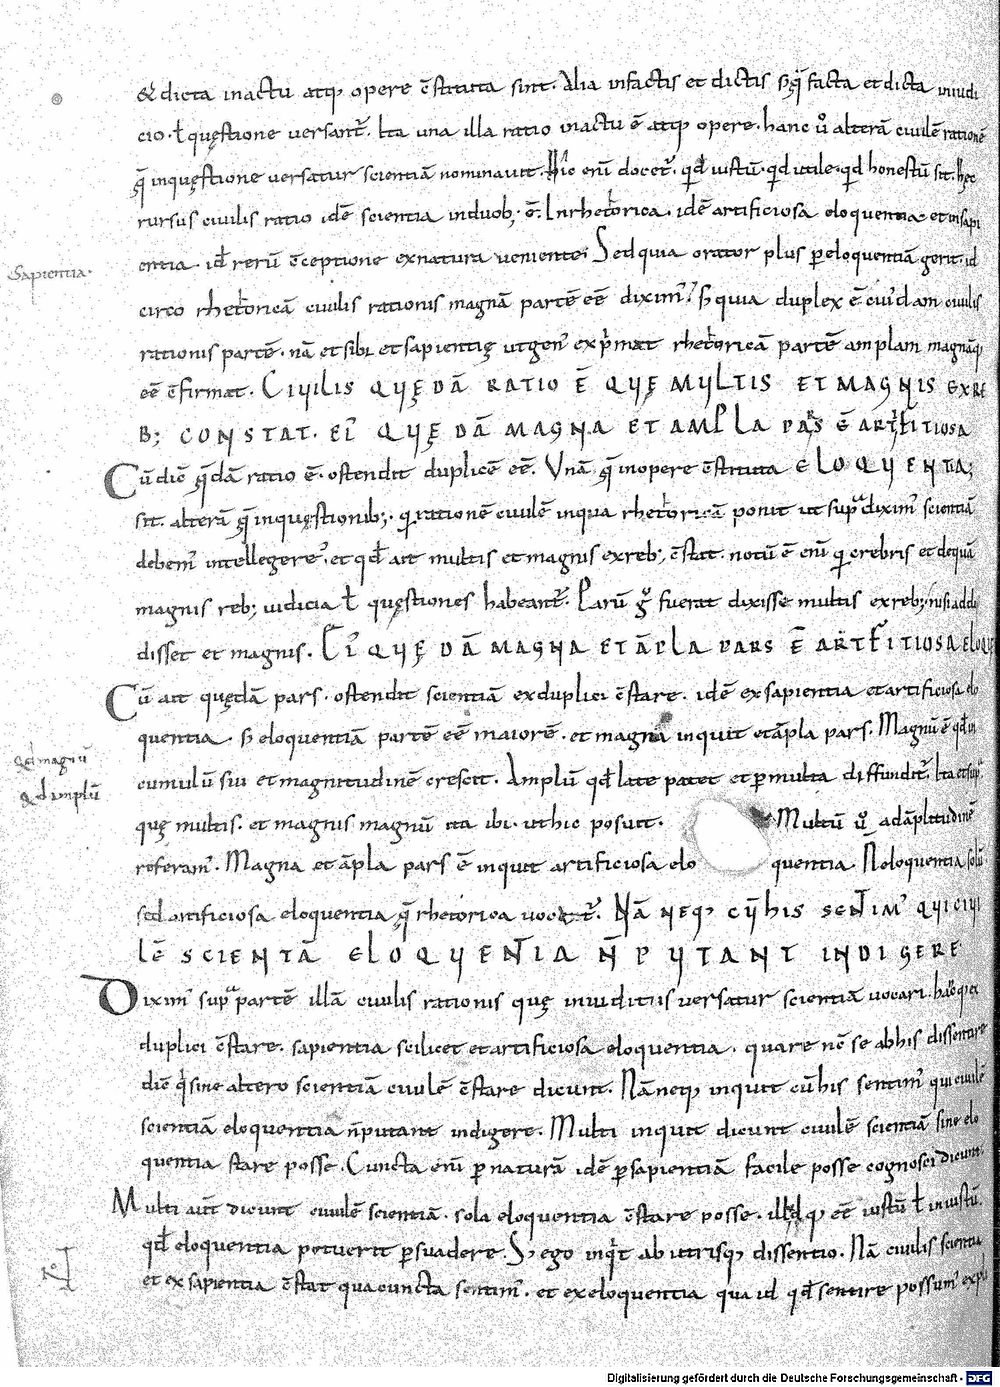 & dicta inactu atq; opere c̄stituta sint. Alia infactis et dictis sꝫ q̄ facta et dicta iniudi
cio. ł quęstione versant᷑. Ita una illa ratio inactu ē atq; opere. hanc ů alterā ciuilē rationē
q̄ inquęstione versatur scientiā nominauit. Hic enī docet᷑. qd̄ iustū. qd̄ utile. qd̄ honestū sit. hęc
rursus ciuilis ratio idē scientia induob; ē. Inrhetorica. idē artificiosa eloquentia. et insapi
Sapientia.
entia. id̄ rerū c̄ceptione exnatura ueniente. Sed quia orator plus p̱ eloquentiā gerit. id
circo rhetoricā ciuilis rationis magnā partē eē diximꝰ. sꝫ quia duplex ē cuiꝰdam ciuilis
rationis partē. nā et sibi et sapientię utgenꝰ exp̍mat rhetoricā partē amplam magnāq;
eē c̄firmat. CIVILIS QVĘDĀ RATIO Ē QVĘ MVLTIS ET MAGNIS EXRE
B; CONSTAT. EIꝰ QVĘDĀ MAGNA ET AMPLA PARS Ē ARTIFITIOSA
Cū diē q̄dā ratio ē. ostendit duplicē eē. Vnā q̄ inopere c̄stituta ELOQVENTIA;
sit. alterā q̄ inquęstionib;. qi rationē ciuilē inqua rhetoricā ponit ut supᵃ diximꝰ scientiā
debemꝰ intellegere. et qd̄ ait multis et magnis exreb; c̄stat. notū ē enī qi crebris et dequā
magnis reb; iudicia ł quęstiones habeant᷑. Parū gͦ fuerat dixisse multis exreb; nisi addi
disset et magnis. EIꝰ QVĘDĀ MAGNA ET ĀPLA PARS Ē ARTIFITIOSA ELOQV
Cū ait quędā pars. ostendit scientiā exduplici c̄stare. idē exsapientia et artificiosa elo
quentia. sꝫ eloquentiā partē eē maiorē. et magna inquit et āpla pars. Magnū ē qd̄ in
qd̄ magnū
cumulū sui et magnitudinē crescit. Amplū qd̄ late patet et p̱ multa diffundit᷑. Ita et supᵃ
qd̄ amplū
quę multis. et magnis magnū ita ibi. ut hic posuit. Multū ů ad āplitudinē
referamꝰ. Magna et āpla pars ē inquit artificiosa elo quentia N̄ eloquentia solū
sed artificiosa eloquentia, q̄ rhetorica vocat᷑. NĀ NEQ; CV̄ HIS SENTIMꝰ QVI CIVI
LĒ SCIENTĀ ELOQVENTIA N̄ PVTANT INDIGERE
Diximꝰ supᵃ partē illā ciuilis rationis quę iniuditiis versatur scientiā uocari. hāc q̄ ex
duplici c̄stare. sapientia scilicet et artificiosa eloquentia. quare nc̄ se abhis dissentire
diē q̍ sine altero scientiā ciuilē c̄stare dicunt. Nā neq; inquit cū his sentimꝰ qui ciuilē
scientiā eloquentia n̄ putant indigere. Multi inquit dicunt ciuilē scientiā sine elo
quentia stare posse. Cuncta enī p̱ naturā idē p̱ sapientiā facile posse cognosci dicunt.
Multi aūt dicunt ciuilē scientiā. sola eloquentia c̄stare posse. illud q; eē iustū ł iniustū.
qd̄ eloquentia potuerit p̱suadere. Sꝫ ego inq̍t ab utrisq; dissentio. Nā ciuilis scientia
et ex sapientia c̄stat qua cuncta sentimꝰ. et ex eloquentia qua id qd̄ sentire possumꝰ expli
Digitalisierung gefördert durch die Deutsche Forschungsgemeinschaft - DFG